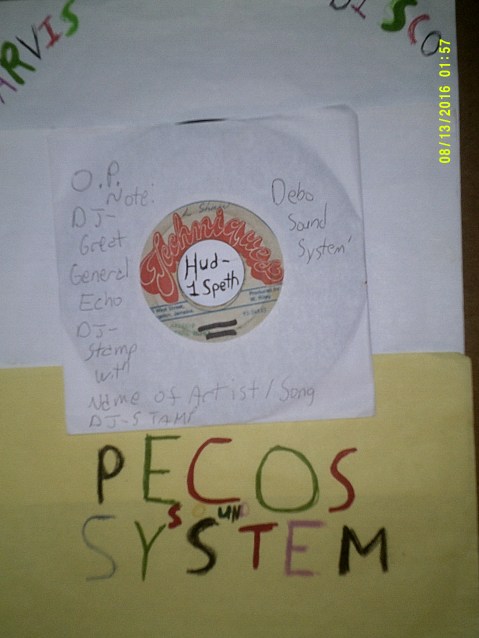 ARVIS
DISCO
08/13/2016 01:57
O.P.
Note:
DJ-
Great
General
Echo
DJ-
Stamp
with
Name of Artist/Song
DJ-STAMP
Debo
Sound
System'
Techniques
Hud-
1 Speth
PECOS
SOUND
SYSTEM